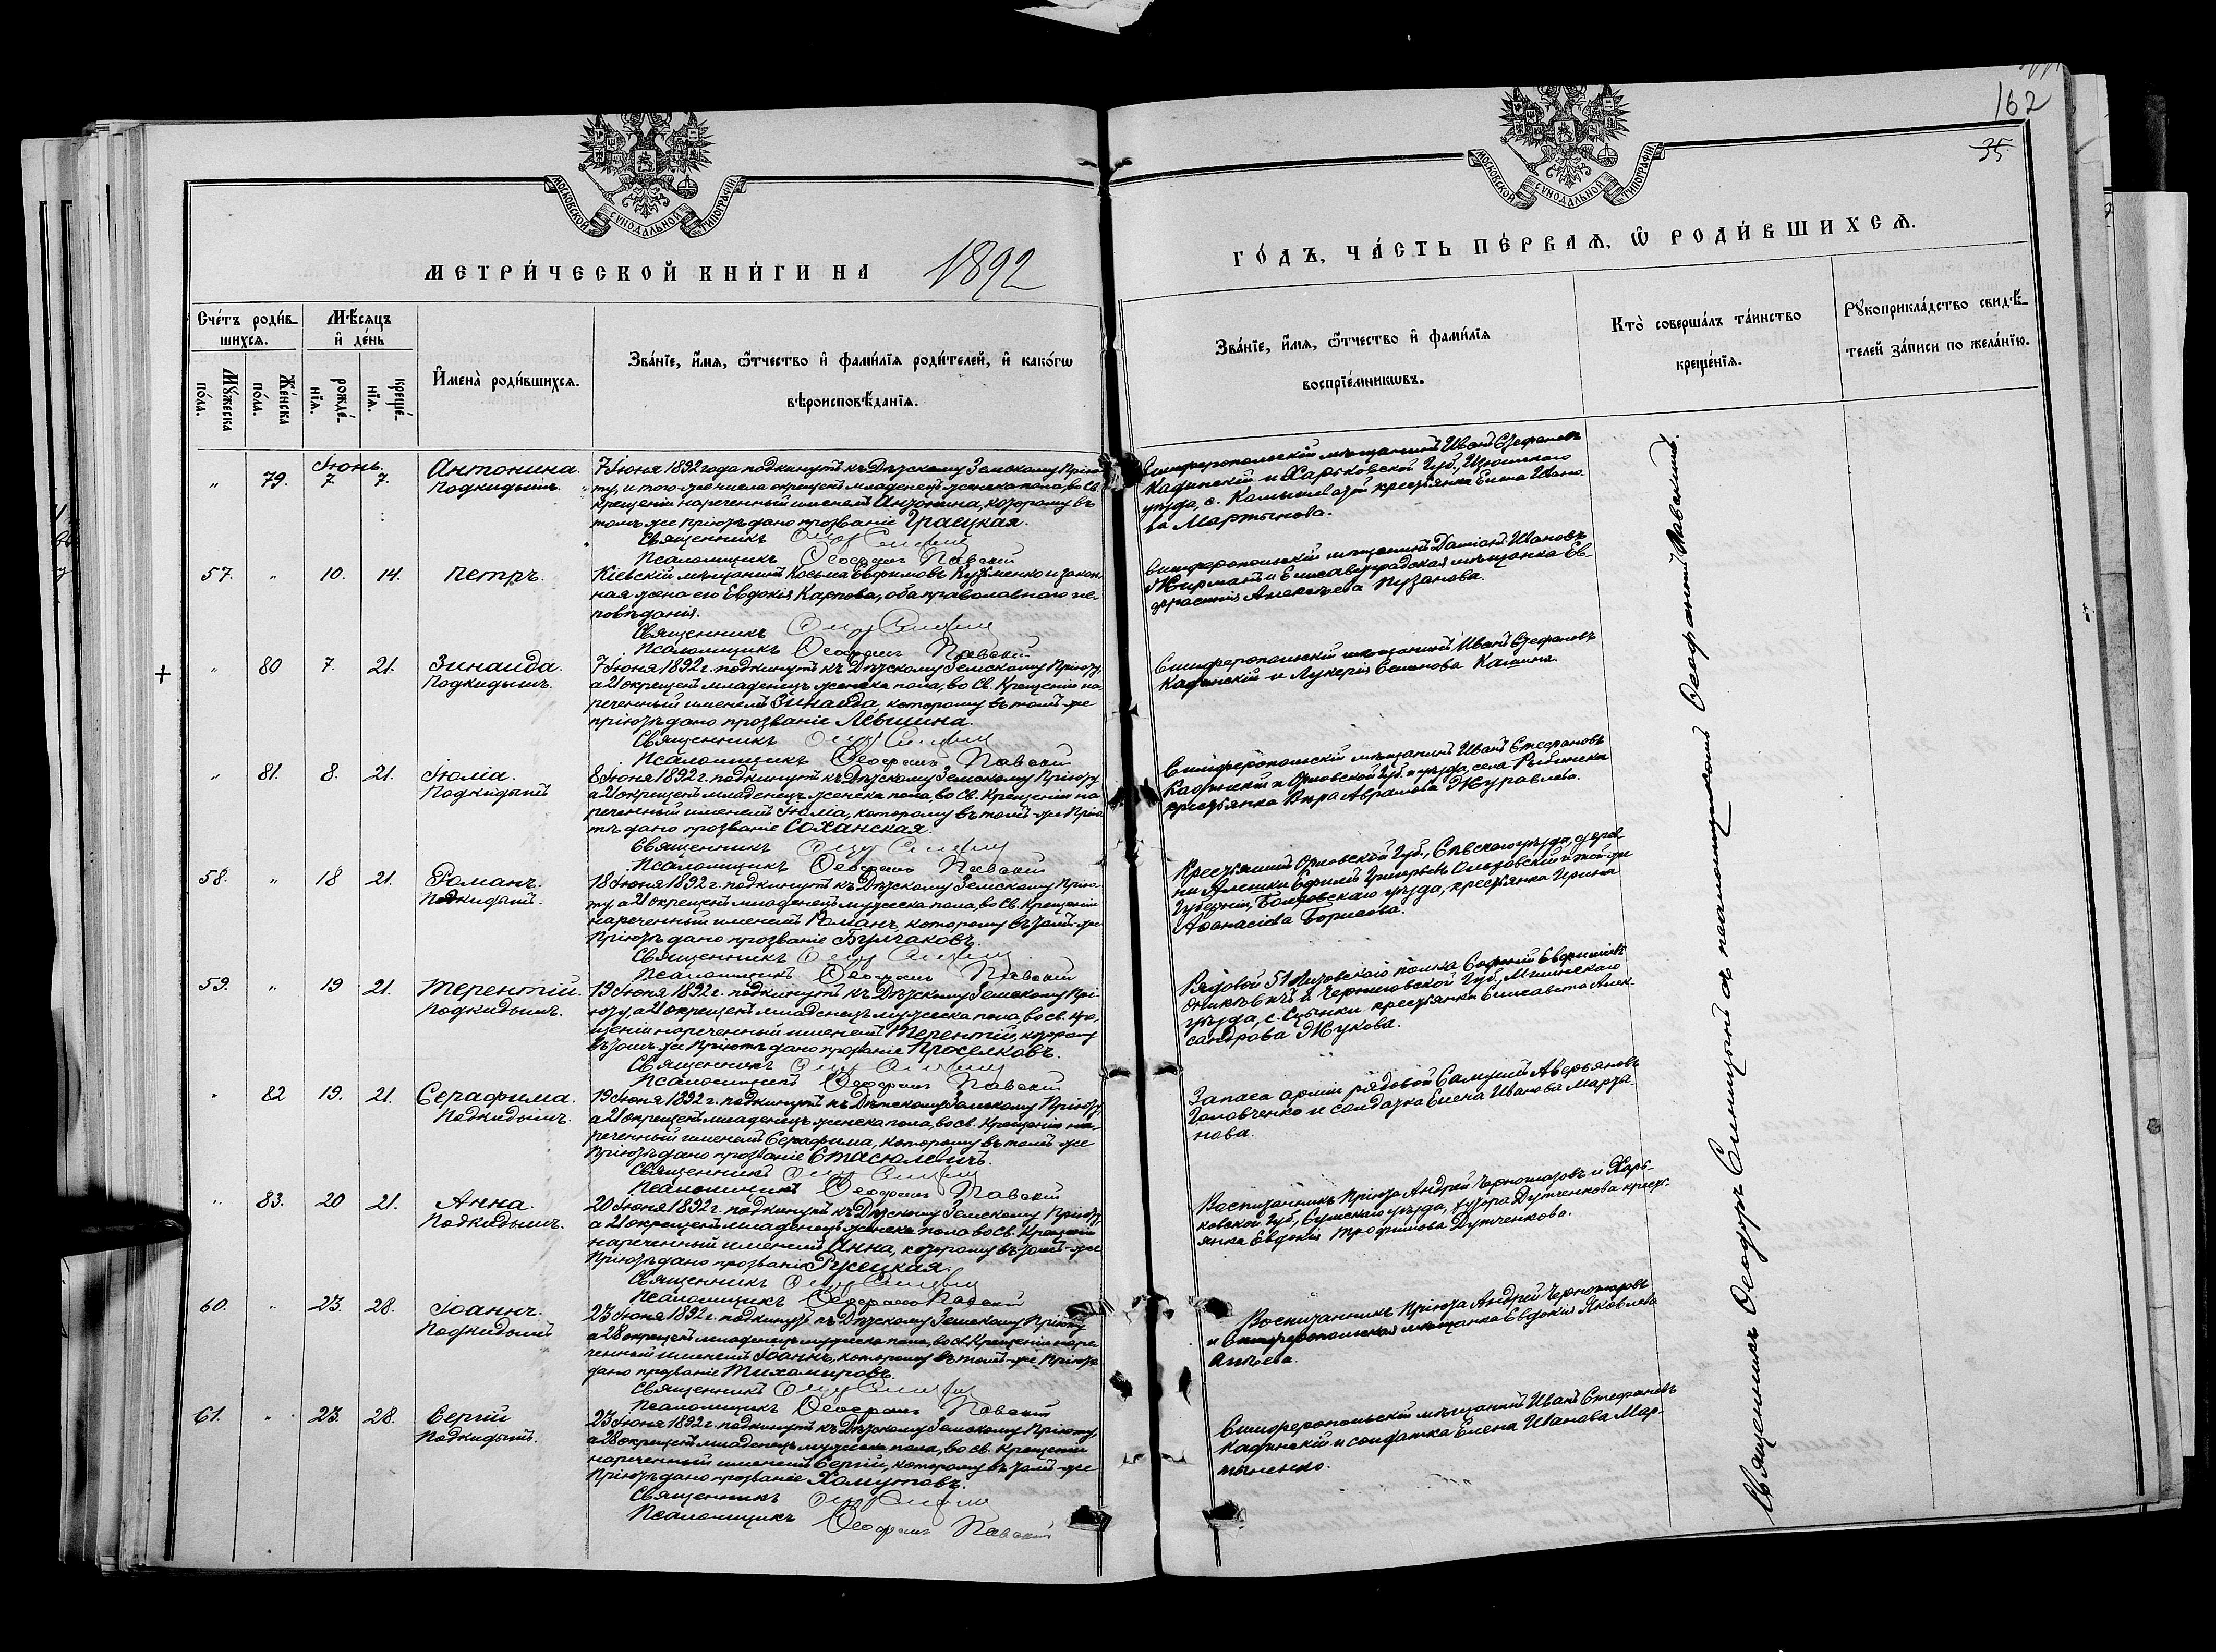 162
35
МОСКОВСКОЙ СѴНОДАЛЬНОЙ ТИПОГРАФІИ
МОСКОВСКОЙ СѴНОДАЛЬНОЙ ТИПОГРАФІИ
МЕТРИ́ЧЕСКОЙ КНИ́ГИ НА 1892
ГО́ДЪ, ЧА́СТЬ ПЕ́РВАѦ, Ѡ҆ РОДИ́ВШИХСѦ.
Сче́тъ роди́в-
шихсѧ.
Мꙋ́жеска по́ла.
Же́нска по́ла.
Мѣ́сѧцъ и҆ де́нь
рожде́нїѧ.
креще́нїѧ.
И҆мена̀ роди́вшихсѧ.
Зва́нїе, и҆́мѧ, ѻ҆́тчество и҆ фами́лїѧ роди́телей, и҆ како́гѡ
вѣроисповѣ́данїѧ.
Зва́нїе, и҆́мѧ, ѻ҆́тчество и҆ фами́лїѧ
воспрїе́мникѡвъ.
Кто̀ соверша́лъ та́инство
креще́нїѧ.
Рꙋкоприкла́дство свидѣ́-
телей за́писи по жела́нїю.
Іюнь.
" 79. 7 7. Антонина.
Подкидышъ.
7 Іюня 1892 года подкинутъ къ Дѣтскому Земскому Прію-
ту, и того-же числа окрещенъ младенецъ женска пола, во Св.
крещеніи нареченный именемъ Антонина, которому въ
томъ же пріютѣ дано прозваніе Грацкая.
Священникъ
Псаломщикъ Ѳеофанъ Павскій
Симферопольскій мѣщанинъ Иванъ Стефановъ
Кадинскій и Харьковской Губ., Изюмскаго
уѣзда, с. Камышевахи крестьянка Елена Ивано
ва Мартынова.
57. " 10. 14. Петръ.
Кіевскій мѣщанинъ Косьма Евфимовъ Кузьменко и закон-
ная жена его Евдокія Карпова, оба православнаго ис-
повѣданія.
Священникъ
Псаломщикъ Ѳеофанъ Павскій
Симферопольскій мѣщанинъ Даміанъ Ивановъ
Жирманъ и Елисаветградская мѣщанка Ев
фросинія Алексѣева Пузанова.
+ " 80 7. 21. Зинаида.
Подкидышъ.
7 Іюня 1892 г. подкинутъ къ Дѣтскому Земскому Пріюту,
а 21 окрещенъ младенецъ женска пола, во Св. Крещеніи на-
реченный именемъ Зинаида, которому въ томъ-же
пріютѣ дано прозваніе Левшина.
Священникъ
Псаломщикъ Ѳеофанъ Павскій
Симферопольскій мѣщанинъ Иванъ Стефановъ
Кадинскій и Лукерія Семенова Кашина
" 81. 8. 21. Іюлія.
Подкидышъ
8 Іюня 1892 г. подкинутъ къ Дѣтскому Земскому Пріюту
а 21 окрещенъ младенецъ женска пола, во Св. Крещеніи на-
реченный именемъ Іюлія, которому въ томъ-же Прію
тѣ дано прозваніе Соханская.
Священникъ
Псаломщикъ Ѳеофанъ Павскій
Симферопольскій мѣщанинъ Иванъ Стефановъ
Кадинскій и Орловской Губ. и уѣзда, села
крестьянка Вѣра Абрамова Журавлева.
58. " 18 21. Романъ.
Подкидышъ.
18 Іюня 1892 г. подкинутъ къ Дѣтскому Земскому Прію-
ту, а 21 окрещенъ младенецъ мужеска пола, во Св. Крещеніи
нареченный именемъ Романъ, которому въ томъ-же
Пріютѣ дано прозваніе Булгаковъ.
Священникъ
Псаломщикъ Ѳеофанъ Павскій
Крестьянинъ Орловской Губ., Сѣвскаго уѣзда, дерев
ни Алешки Ефимъ Григорьевъ и той-же
Губерніи, уѣзда, крестьянка Ирина
Аѳанасіева Борисова.
59. " 19 21. Терентій.
Подкидышъ.
19 Іюня 1892 г. подкинутъ къ Дѣтскому Земскому Прі-
юту, а 21 окрещенъ младенецъ мужеска пола, во св. кре-
щеніи нареченный именемъ Терентій, которому
въ томъ-же Пріютѣ дано прозваніе Проселковъ.
Священникъ
Псаломщикъ Ѳеофанъ Павскій
Рядовой 51 Литовскаго полка
и Черниговской Губ., Мглинскаго
уѣзда, с. крестьянка Елисавета Алек-
сандрова Жукова.
" 82 19. 21. Серафима.
Подкидышъ.
19 Іюня 1892 г. подкинутъ къ Дѣтскому Земскому Пріюту,
а 21 окрещенъ младенецъ женска пола, во св. Крещеніи на-
реченный именемъ Серафима, которому въ томъ-же
Пріютѣ дано прозваніе Стасюлевичъ.
Священникъ
Псаломщикъ Ѳеофанъ Павскій
Запаса арміи рядовой Самуилъ Аверьяновъ
Головченко и солдатка Елена Иванова Марты-
нова.
" 83. 20 21. Анна.
Подкидышъ.
20 Іюня 1892 г. подкинутъ къ Дѣтскому Земскому Пріюту,
а 21 окрещенъ младенецъ женска пола во Св. Крещеніи
нареченный именемъ Анна, которому въ томъ-же
Пріютѣ дано прозваніе Русецкая.
Священникъ
Псаломщикъ Ѳеофанъ Павскій
Воспитанникъ Пріюта Андрей Черномазовъ и Харь-
ковской Губ., Сумскаго уѣзда, хутора Дутченкова крест-
янка Евдокія Трофимова Дутченкова.
60. " 23. 28. Іоаннъ.
Подкидышъ
23 Іюня 1892 г. подкинутъ къ Дѣтскому Земскому Пріюту
а 28 окрещенъ младенецъ мужеска пола, во св. Крещеніи наре-
ченный именемъ Іоаннъ, которому въ томъ-же Пріютѣ
дано прозваніе Тихомировъ.
Священникъ
Псаломщикъ Ѳеофанъ Павскій
Воспитанникъ Пріюта Андрей Черномазовъ
и Симферопольская мѣщанка Евдокія Яковлева
61. " 23. 28. Сергій
Подкидышъ.
23 Іюня 1892 г. подкинутъ къ Дѣтскому Земскому Пріюту
а 28 окрещенъ младенецъ мужеска пола, во св. Крещеніи
нареченный именемъ Сергій, которому въ томъ-же
Пріютѣ дано прозваніе Хомутовъ.
Священникъ
Псаломщикъ Ѳеофанъ Павскій
Симферопольскій мѣщанинъ Иванъ Стефановъ
Кадинскій и солдатка Елена Иванова Мар-
тыненко.
Священникъ Ѳеодоръ Синицынъ съ псаломщикомъ Ѳеофаномъ Павскимъ.